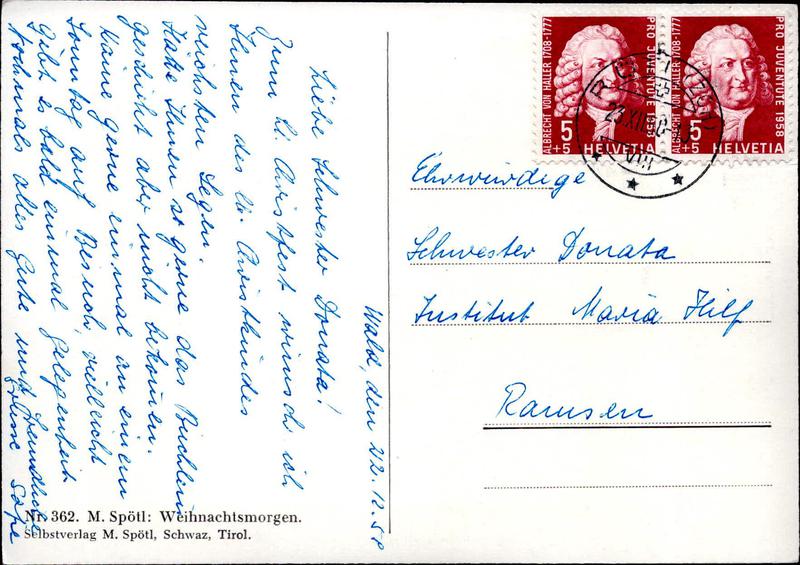 Wald, den 22.12.58
Liebe Schwester Donata!
Zum hl. Christfest wünsch ich
Ihnen des lb. Christkindes
reichsten Segen.
Hätte Ihnen so gerne das Büchlein
geschickt aber nicht bekommen.
Käme gerne einmal an einem
Sonntag auf Besuch, vielleicht
gibt es bald einmal Gelegenheit.
Nochmals alles Gute und freundliche
Grüsse
Nr. 362. M. Spötl: Weihnachtsmorgen.
Selbstverlag M. Spötl, Schwaz, Tirol.
ALBRECHT VON HALLER 1708-1777
PRO JUVENTUTE 1958
5
+5
HELVETIA
ALBRECHT VON HALLER 1708-1777
PRO JUVENTUTE 1958
5
+5
HELVETIA
23.XII
VIII
Ehrwürdige
Schwester Donata
Institut Maria Hilf
Ramsen